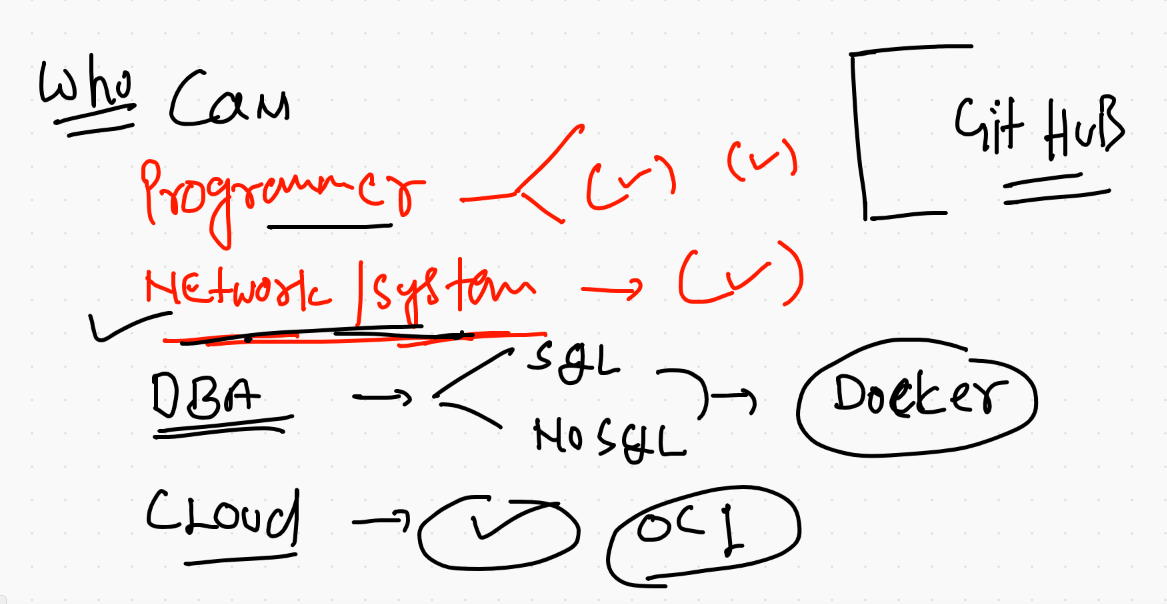 Who Can
GitHuB
Programmer
NEtwork/system
DBA
SQL
NoSQL
Docker
CLoud
OCI